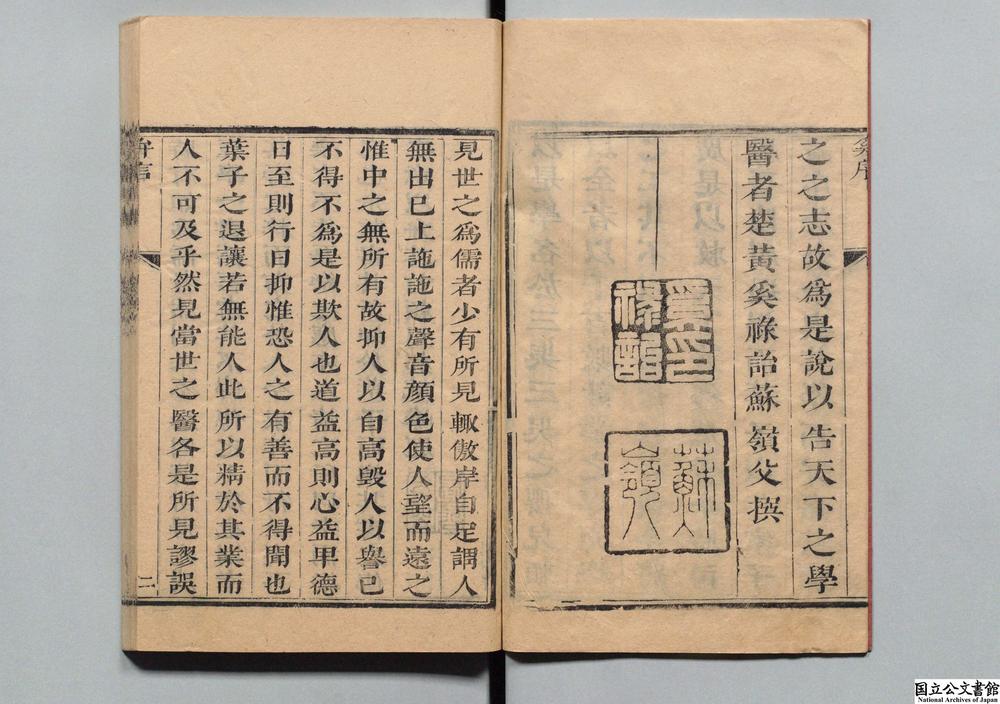 之之志故爲是說以告天下之學
醫者楚黃奚祿詒蘇嶺父撰
奚印
祿詒
蘇嶺
見世之爲儒者少有所見輙傲岸自足謂人
無出已上訑訑之聲音顏色使人望而遠之
惟中之無所有故抑人以自高毀人以譽已
不得不爲是以欺人也道益高則心益甲德
日至則行日抑惟恐人之有善而不得聞也
葉子之退讓若無能人此所以精於其業而
人不可及乎然見當世之醫各是所見謬誤
二
国立公文書館
National Archives of Japan